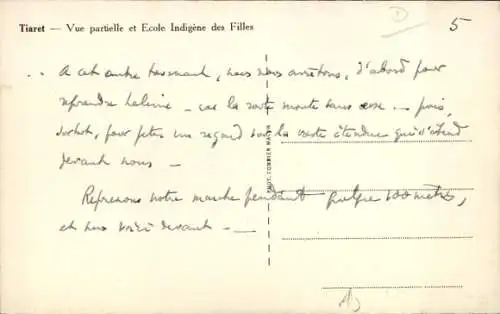 Tiaret — Vue partielle et Ecole Indigène des Filles
5
.. A cet autre tournant, nous nous arrêtons, d'abord pour
reprendre haleine - car la route monte sans cesse - puis,
surtout, pour jeter un regard sur la vaste étendue qui s'étend
devant nous —
Reprenons notre marche pendant quelque 100 mètres,
et nous voici devant - —
PHOT. COMBIER MACON